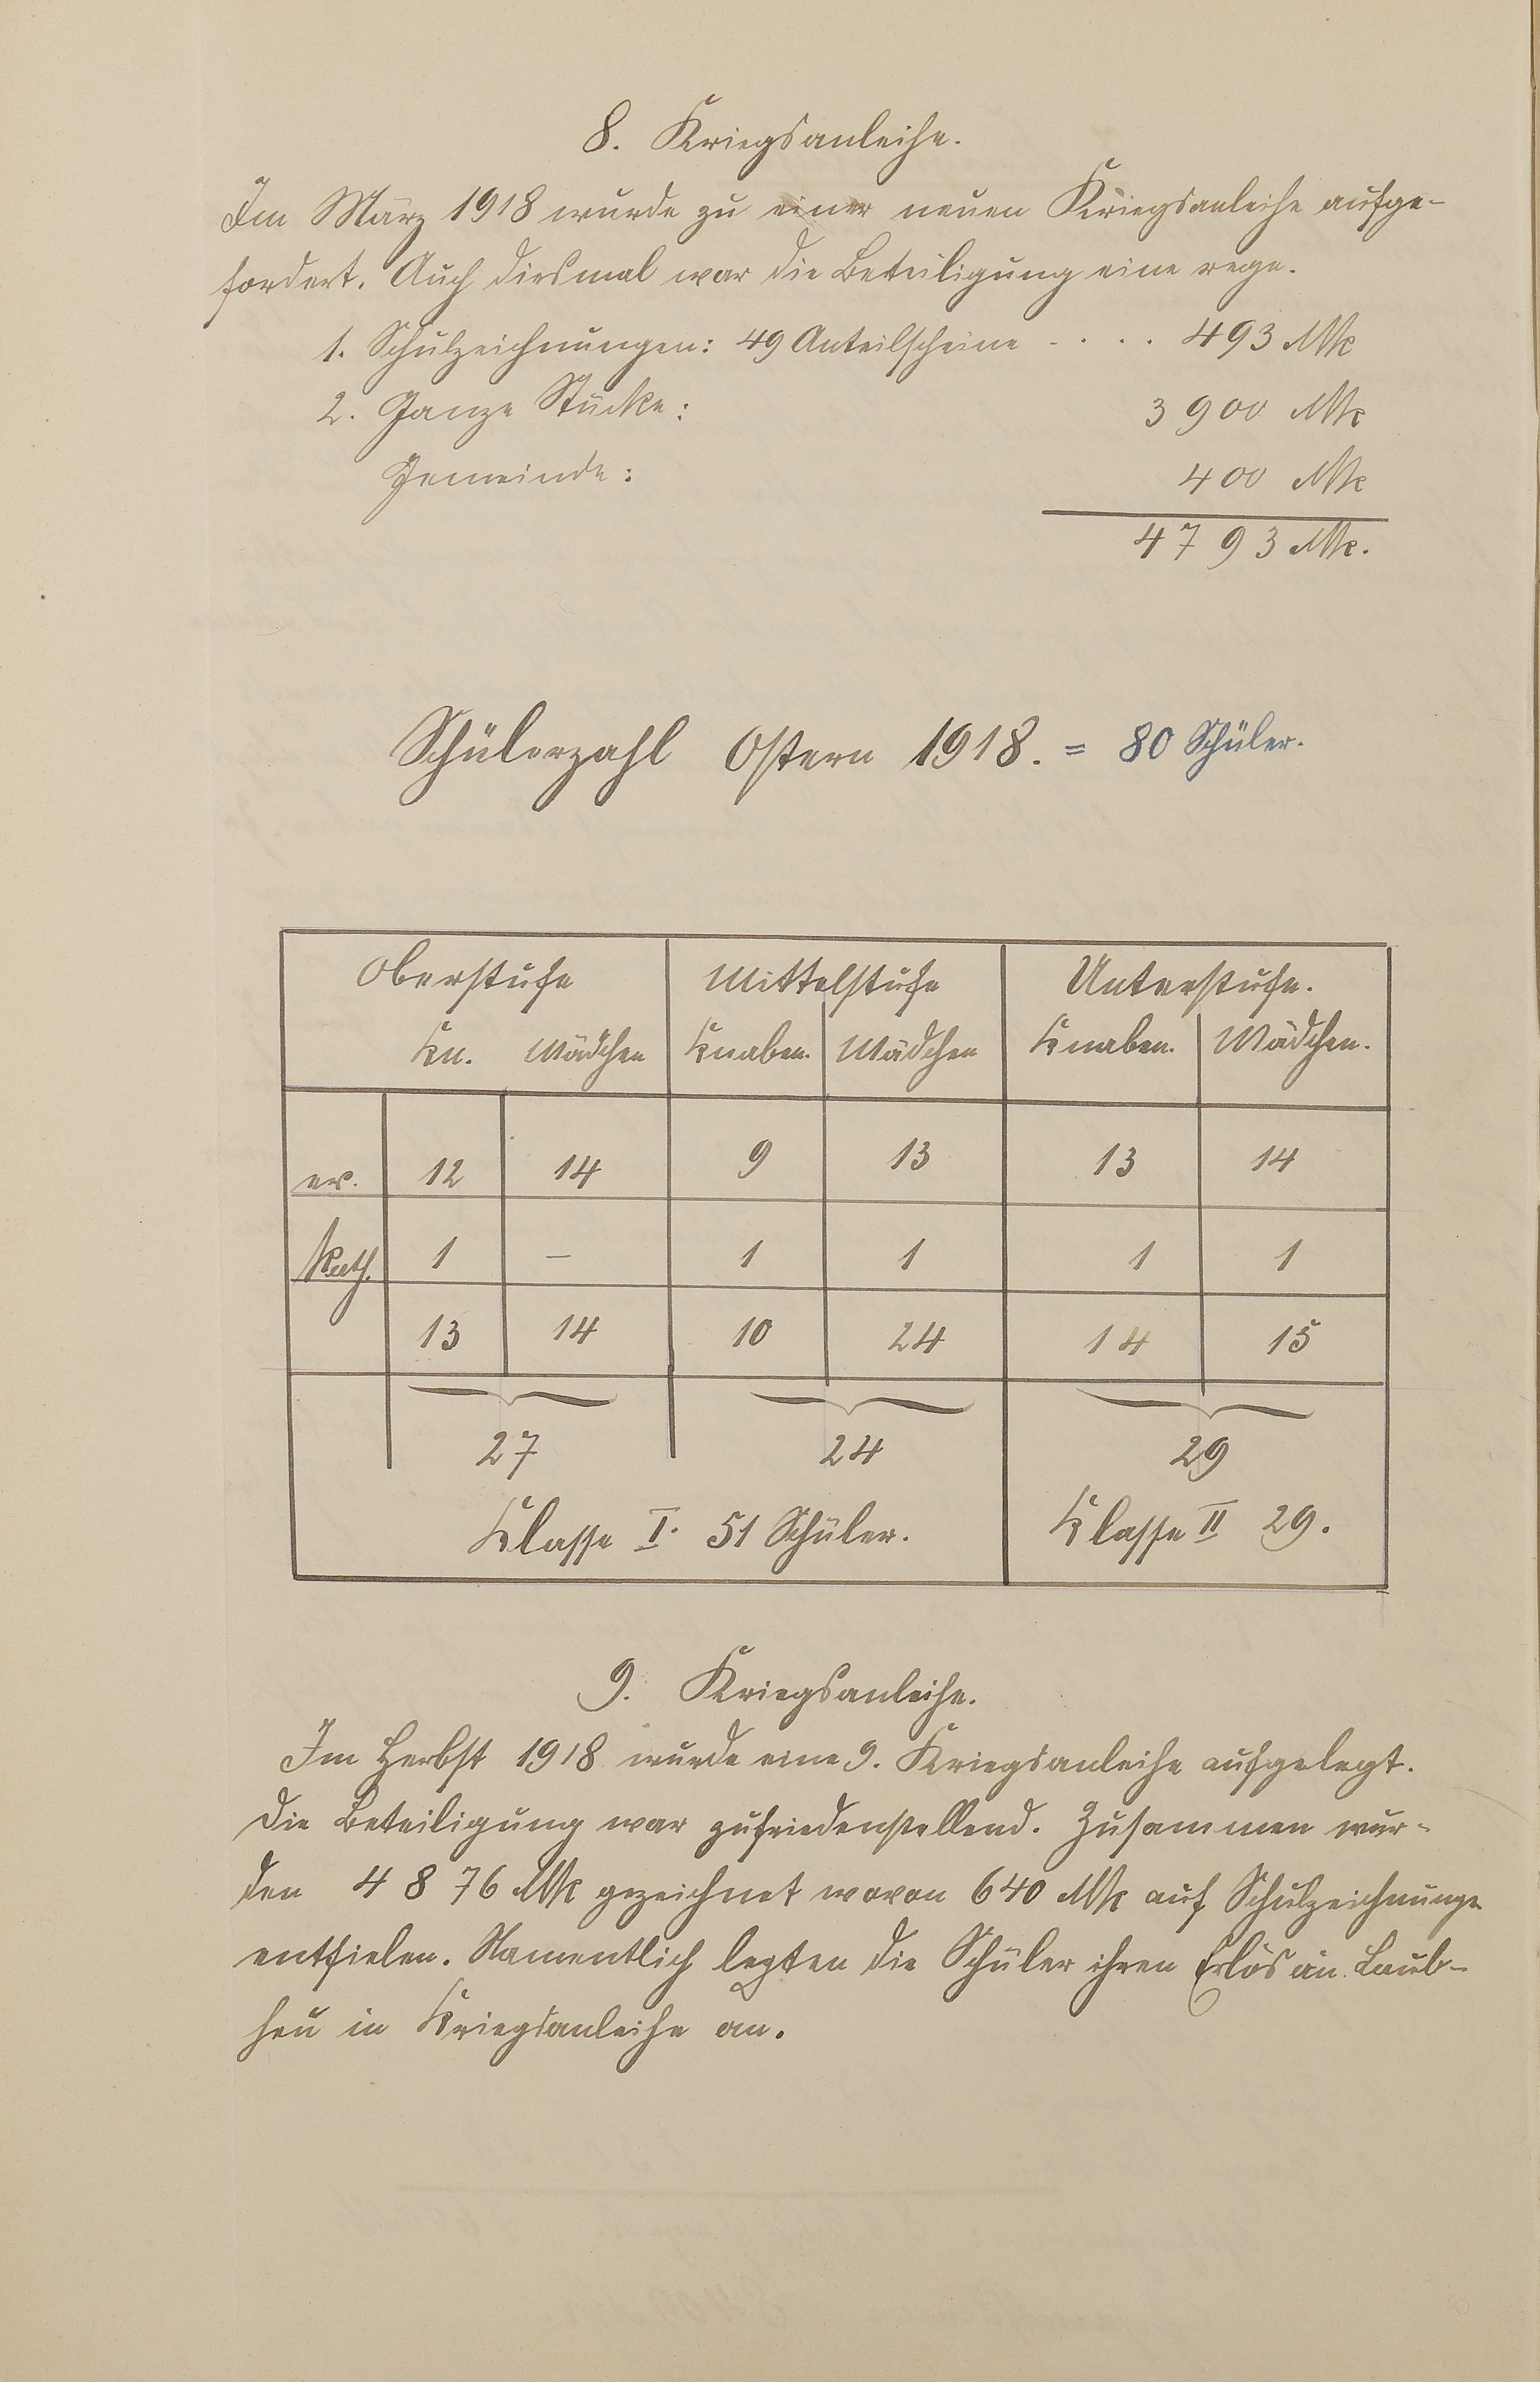 8. Kriegsanleihe.
Im März 1918 wurde zu einer neuen Kriegsanleihe aufge-
fordert. Auch diesmal war die Beteiligung eine rege.
1. Schulzeichnungen: 49 Anteilscheine - . . . 493 Mk
2. Ganze Stücke: 3900 Mk
Gemeinde: 400 Mk
4793 Mk.
Schülerzahl Ostern 1918. = 80 Schüler.
Oberstufe Mittelstufe Unterstufe.
Kn. Mädchen Knaben. Mädchen Knaben. Mädchen.
ev. 12 14 9 13 13 14
Kath. 1 — 1 1 1 1
13 14 10 24 14 15
27 24 29
Klasse I. 51 Schüler. Klasse II 29.
9. Kriegsanleihe.
Im Herbst 1918 wurde eine 9. Kriegsanleihe aufgelegt.
Die Beteiligung war zufriedenstellend. Zusammen wur-
den 4876 Mk gezeichnet wovon 640 Mk auf Schulzeichnunge
entfielen. Namentlich legten die Schüler ihren Erlös an Laub-
heu in Kriegsanleihe an.